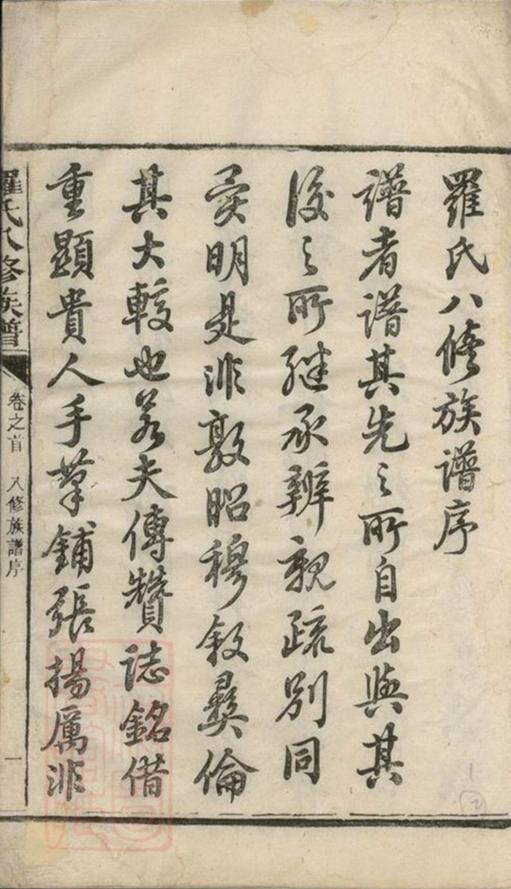 羅氏八修族譜序
譜者譜其先之所自出與其
後之所繼承辨親疏別同
異明是非敦昭穆敘彝倫
其大較也若夫傳贊誌銘借
重顯貴人手筆鋪張揚厲非
羅氏八修族譜
卷之首 八修族譜序
一